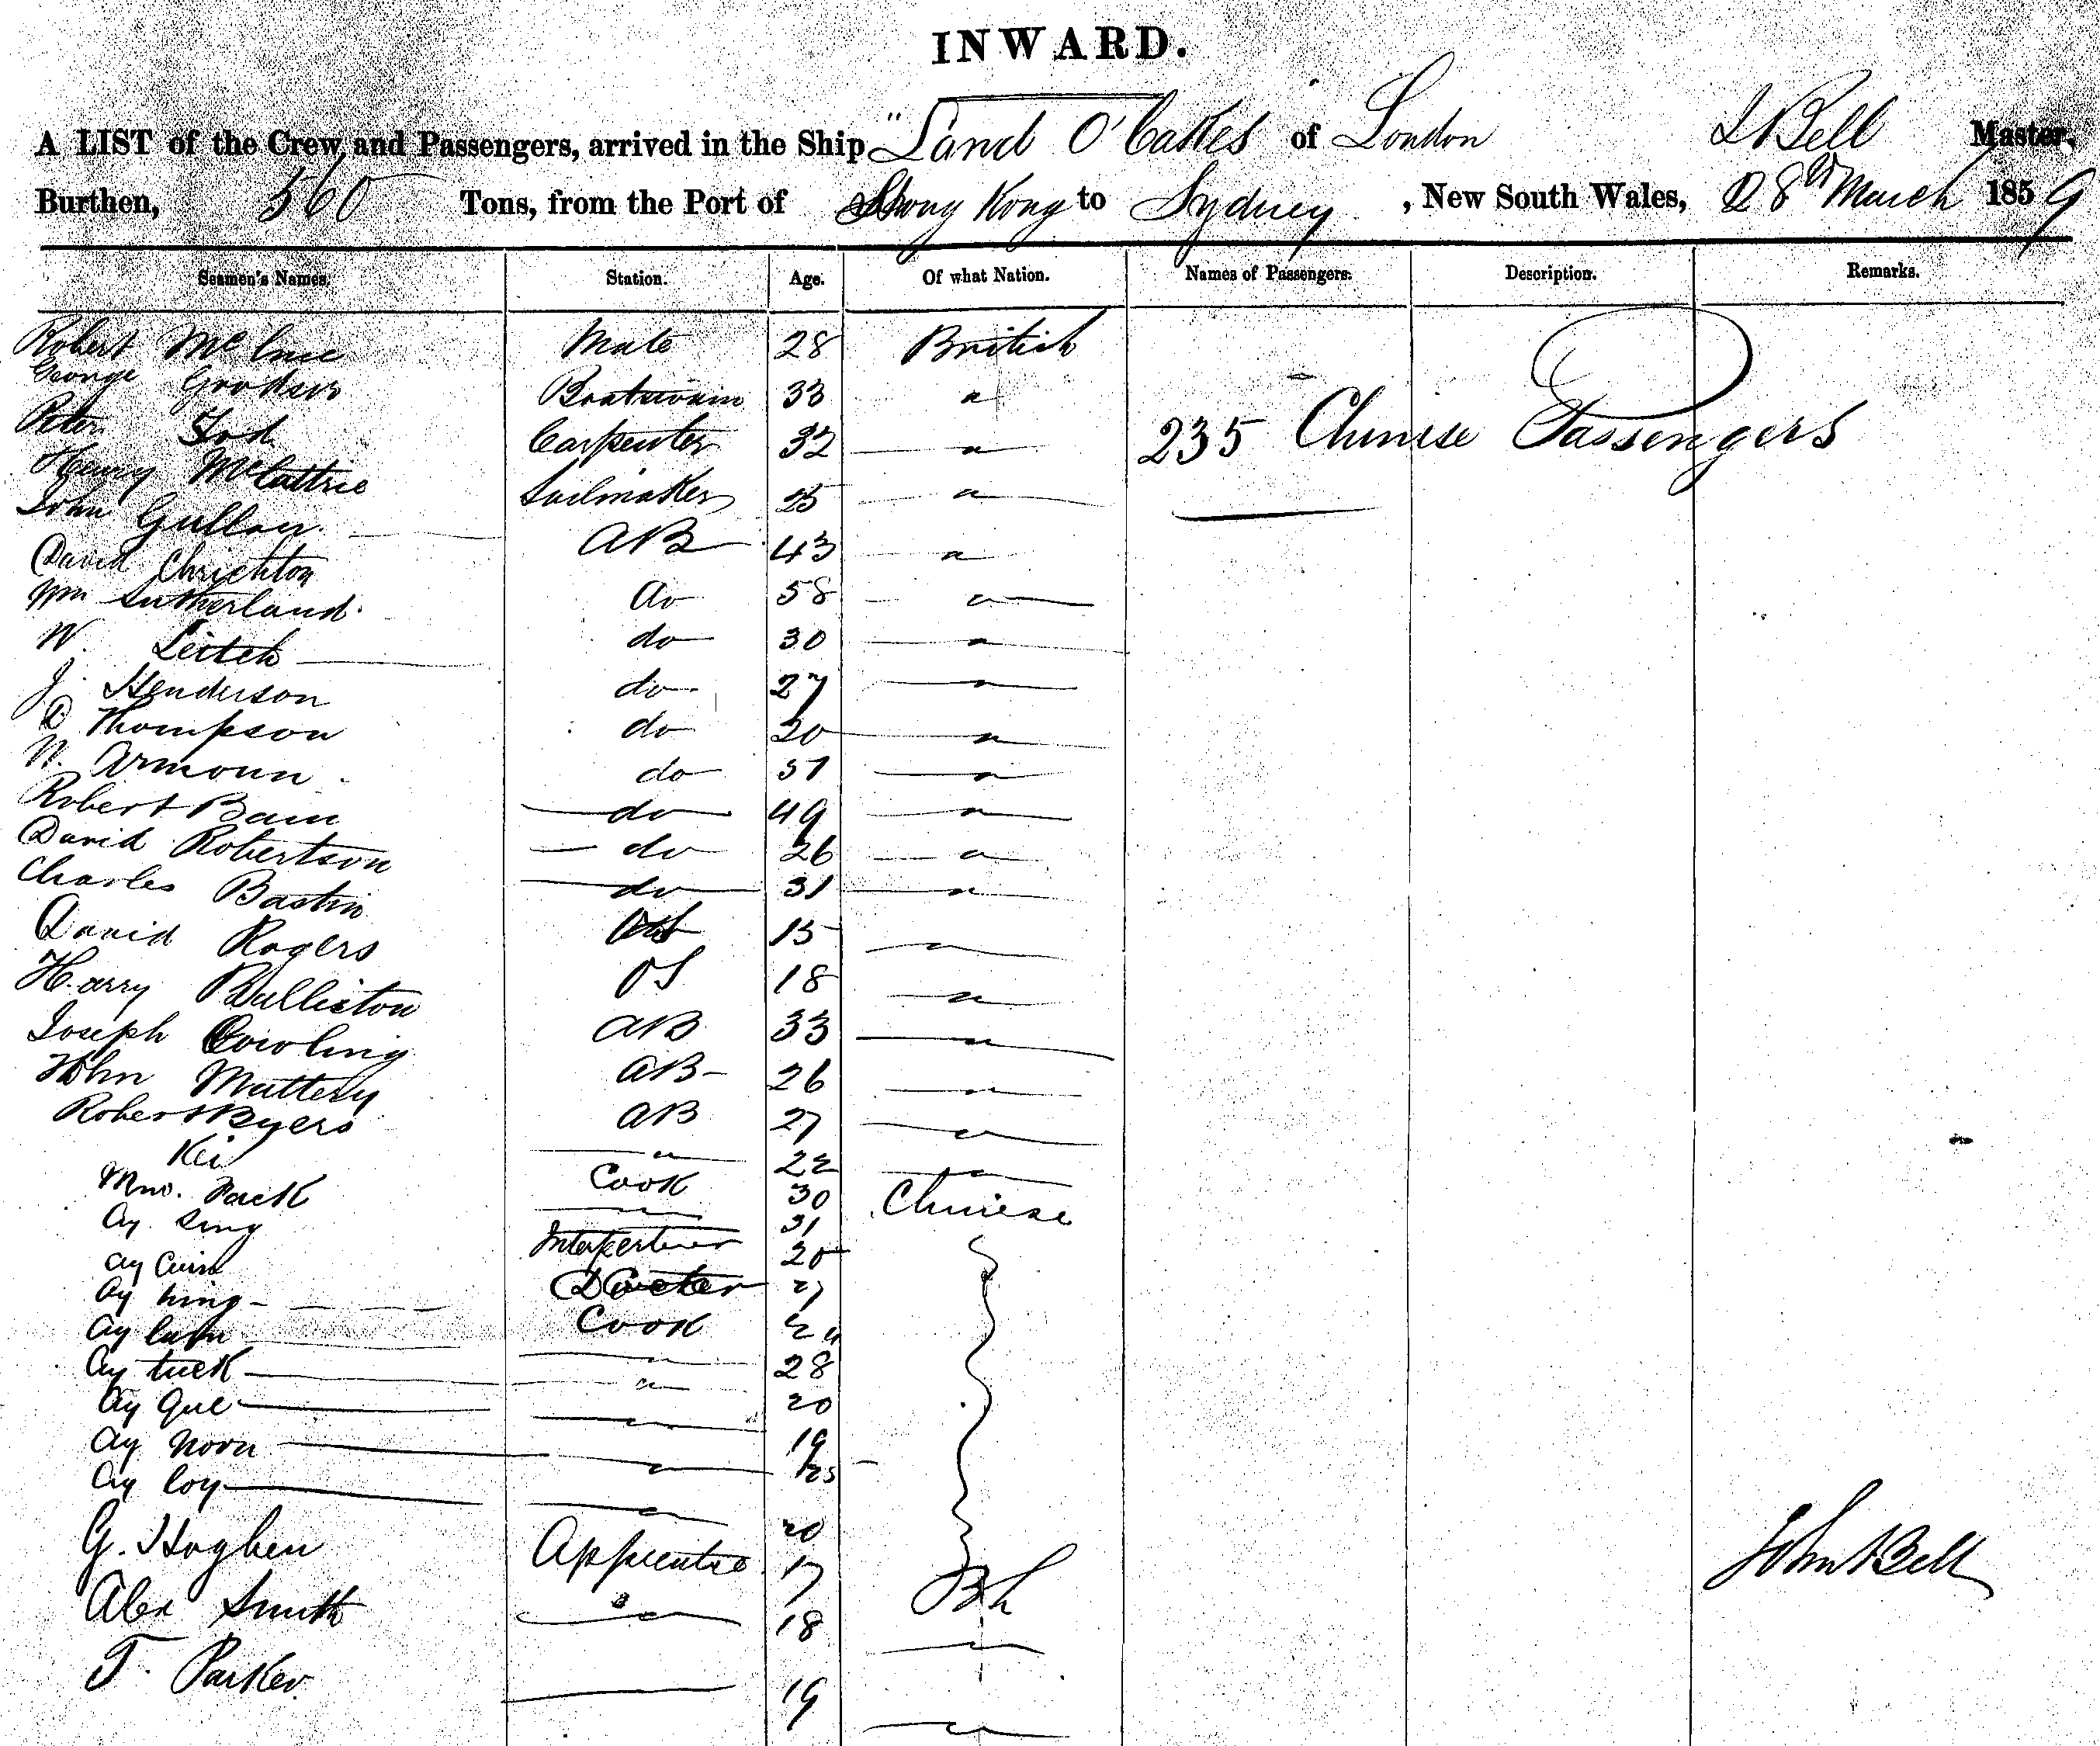 INWARD.
A LIST of the Crew and Passengers, arrived in the Ship "Land O'Cakes of London J Bell Master,
Burthen, 560 Tons, from the Port of Hong Kong to Sydney, New South Wales, 28th March 1859
Seamen's Names. Station. Age. Of what Nation. Names of Passengers. Description. Remarks.
Robert Mate 28 British
George Boatswain 33 "
235 Chinese Passengers
Peter Carpenter 32 "
Henry McCattrie Sailmaker 25 "
John Gullan AB 43 "
David Chrichton do 58 "
Wm Sutherland do 30 "
W. Leitch do 27 "
J. Henderson do 20 "
D Thompson do "
W. Armoun do 49 "
Robert Bain do 26 "
David Robertson do 31 "
Charles Bastin 15 "
David Rogers OS 18 "
Harry Bulliston AB 33 "
Joseph Cowling AB 26 "
John Mattery AB 27 "
Robert Byers " 22 "
Kei Cook 30 Chinese
Pack " 31
Ay Sing 20
Ay Doctor 27
Ay hing Cook 24
Ay lum " 28
Ay tuck " 20
Ay Que " 19
Ay Noon " 25
Ay loy " 20
G. Hoghen Apprentice 17 Bh
John Bell
Alex Smith " 18 "
T. Parker 19 "